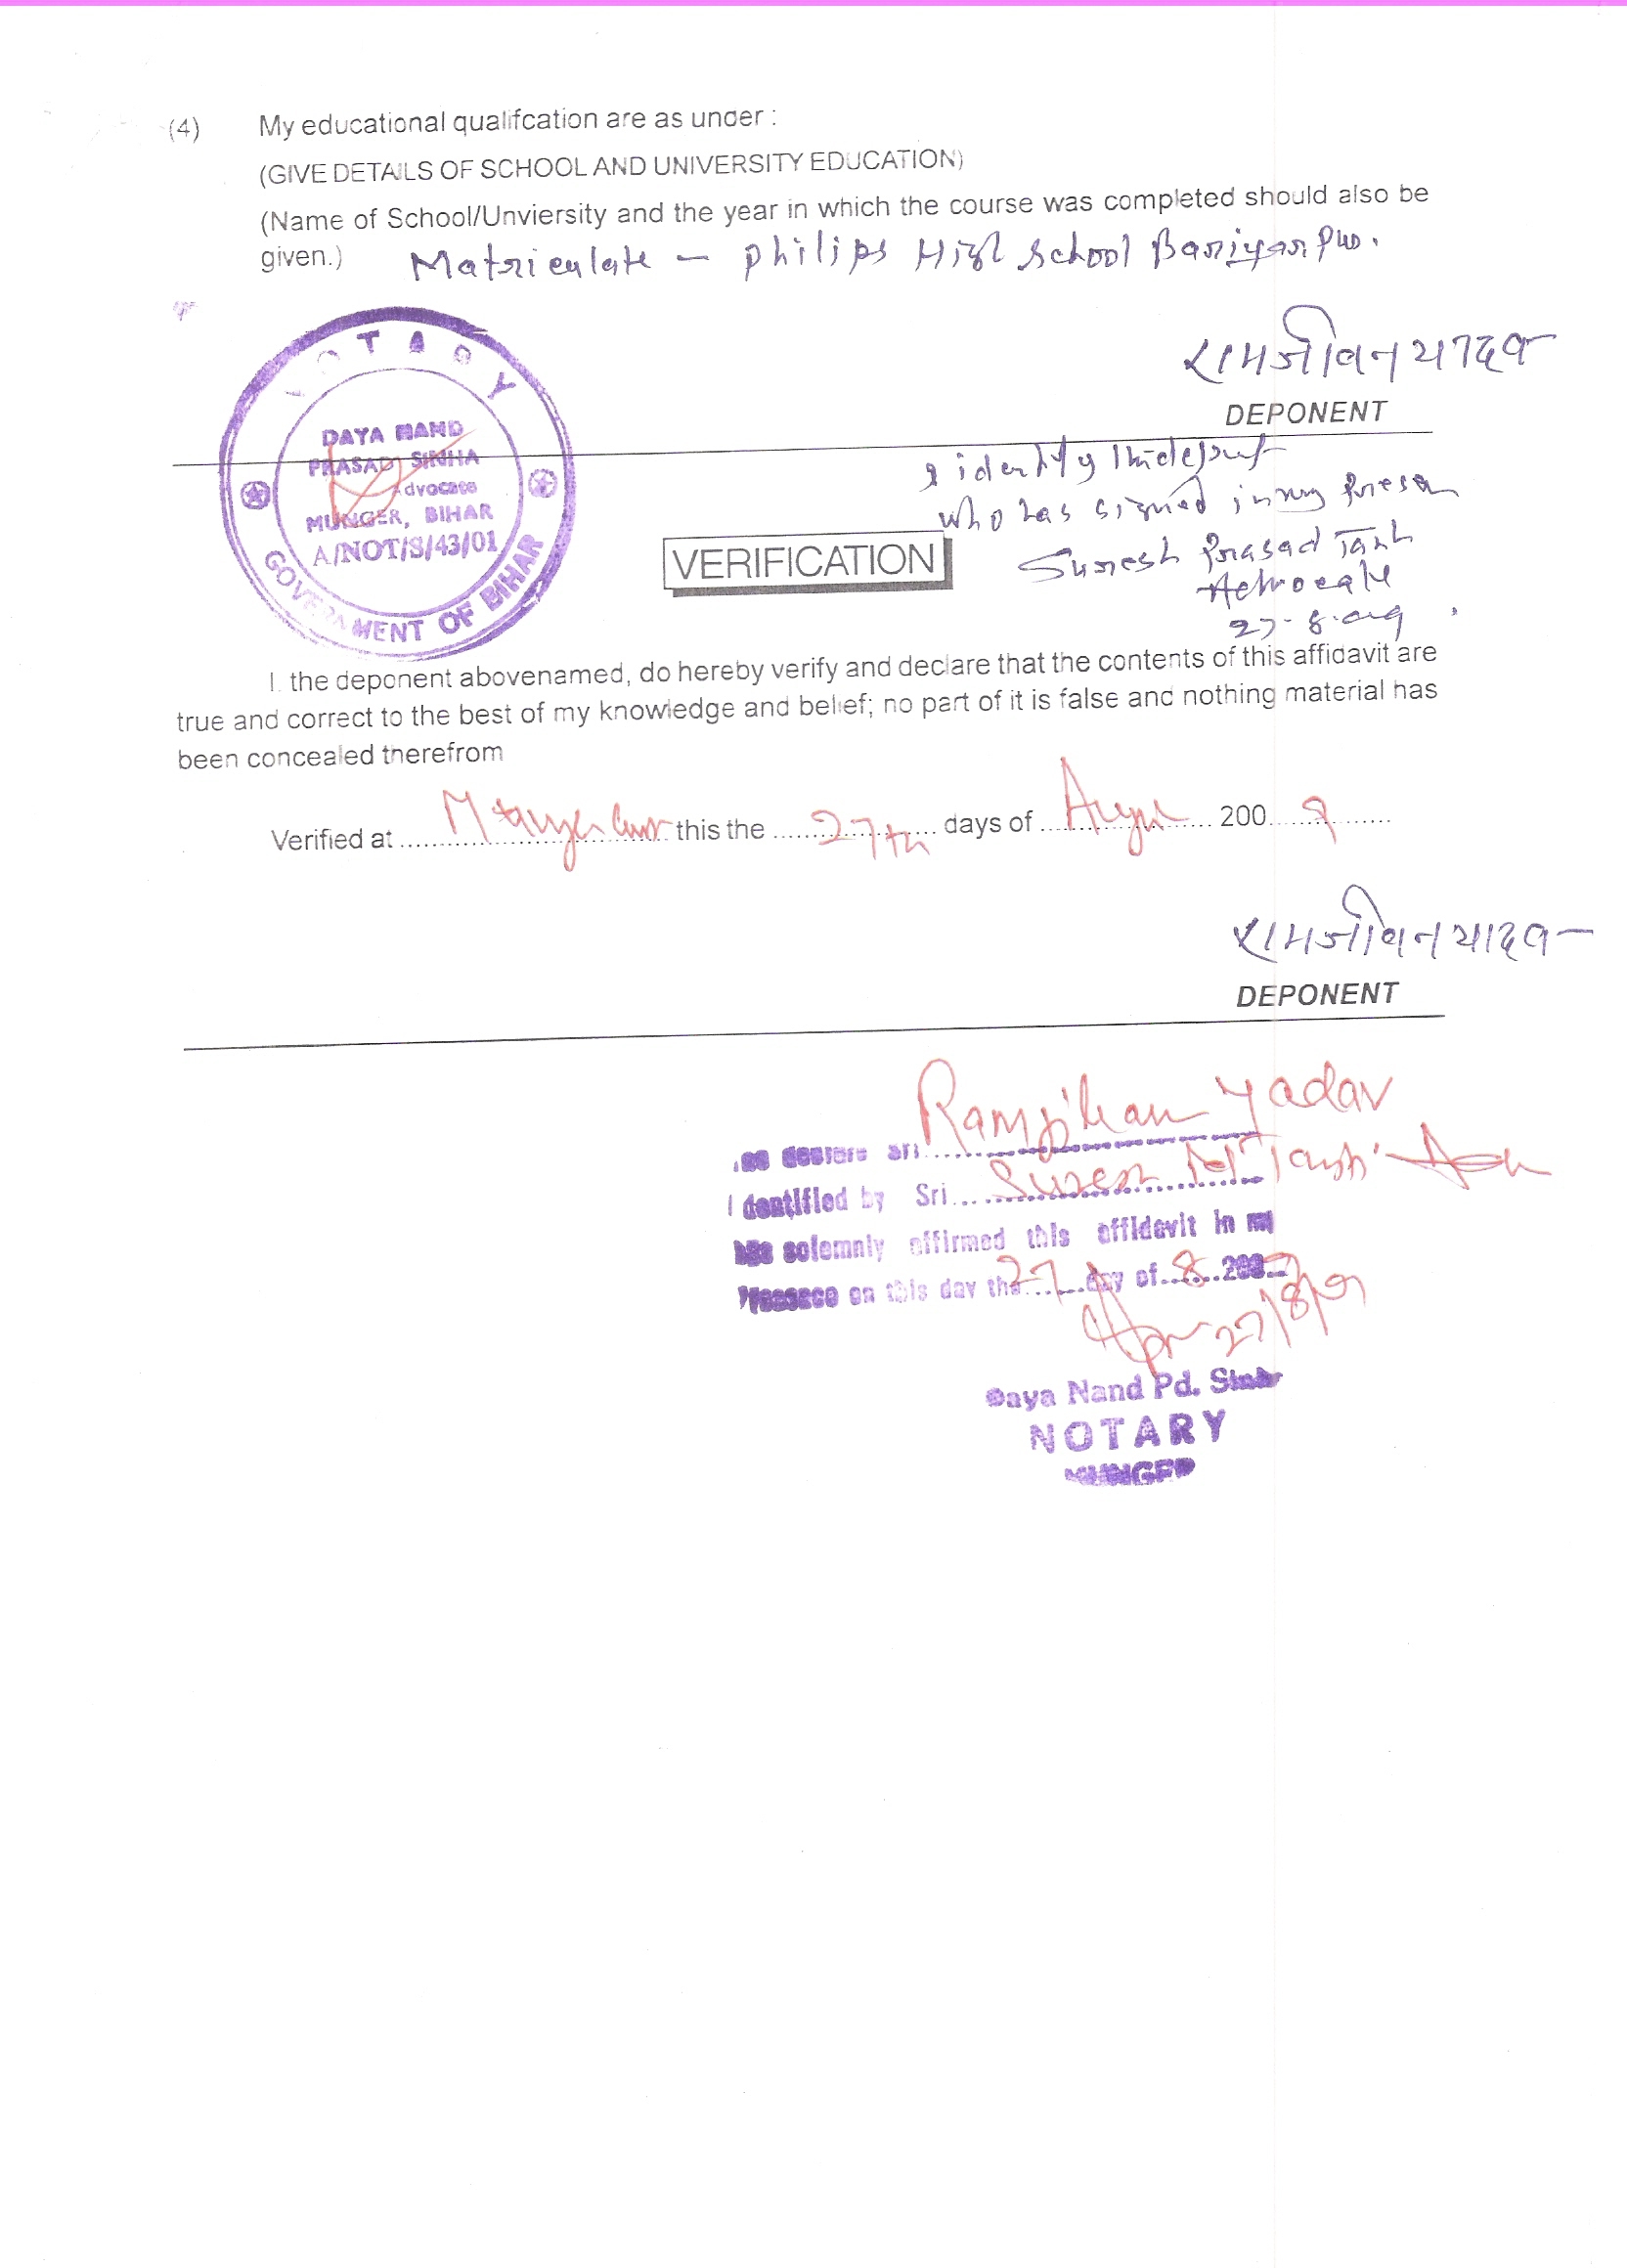 (4) My educational qualifcation are as under :
(GIVE DETAILS OF SCHOOL AND UNIVERSITY EDUCATION)
(Name of School/Unviersity and the year in which the course was completed should also be
given.) Matriculate – Philips High School Bariyarpur.
रामजीवन यादव
DEPONENT
NOTARY
DAYA NAND
PRASAD SINHA
Advocate
MUNGER, BIHAR
A/NOT/S/43/01
GOVERNMENT OF BIHAR
I identify
who has signed in my
Suresh Prasad
Advocate
27-8-09
VERIFICATION
I, the deponent abovenamed, do hereby verify and declare that the contents of this affidavit are
true and correct to the best of my knowledge and belief; no part of it is false and nothing material has
been concealed therefrom
Verified at this the 27th days of 200 9
रामजीवन यादव
DEPONENT
Ramjiwan Yadav
Identified by Sri Suresh Pd
solemnly affirmed this affidevit in
on this day the 27 day of 8 200 9
27/8/09
Daya Nand Pd. Sinha
NOTARY
MUNGER